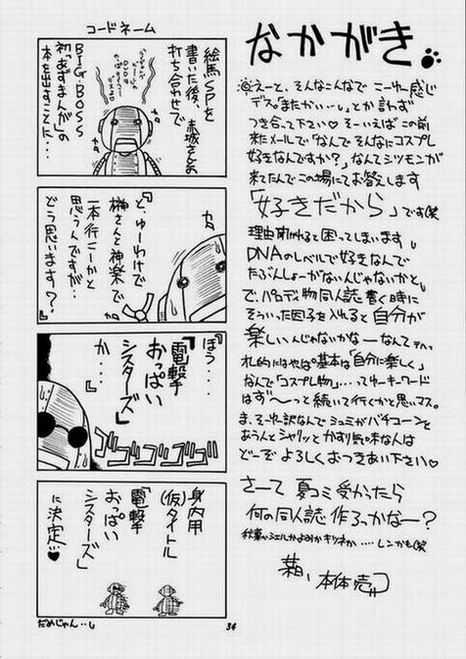 なかがき
えーと、そんなこんなで こーゆー感じ
デス。またかい…しとか言わず
つき合って下さい♡ そーいえば この前
来たメールで「なんで そんなにコスプレ
好きなんですか？」なんてシツモンが
来てたんでこの場にてお答えします
「好きだから」です(笑
理由聞かれると困ってしまいます
DNAのレベルで好きなんで
たぶんしょーがないんじゃないかと
で、パロディ物同人誌 書く時に
そういった因子を入れると自分が
楽しいんじゃないかなーなんて
私的にはやぱ基本は「自分に楽しく」
なんで「コスプレ物」…ってゆーキーワード
はず〜っと続いて行くかと思いマス。
ま、そーゆー訳なんで シュミがバチコーンと
あうんとシャリッとかすり気味な人は
どーぞ よろしくおつきあい下さい♡
さーて 夏コミ受かったら
何の同人誌 作ろっかなー？
本体 売
コードネーム
絵馬SPを
書いた後、赤城さんと
打ち合わせで
BIG BOSS
初「あずまんが」の
本を出すことに…
『と、ゆーわけで
榊さんと神楽で
一本行こーかと
思うんですが…
どう思います？』
『ほう…
『電撃
おっぱい
シスターズ』
か…』
ゴゴゴゴゴゴ
身内用
(仮)タイトル
『電撃
おっぱい
シスターズ』
に決定…♡
だめじゃん…
34